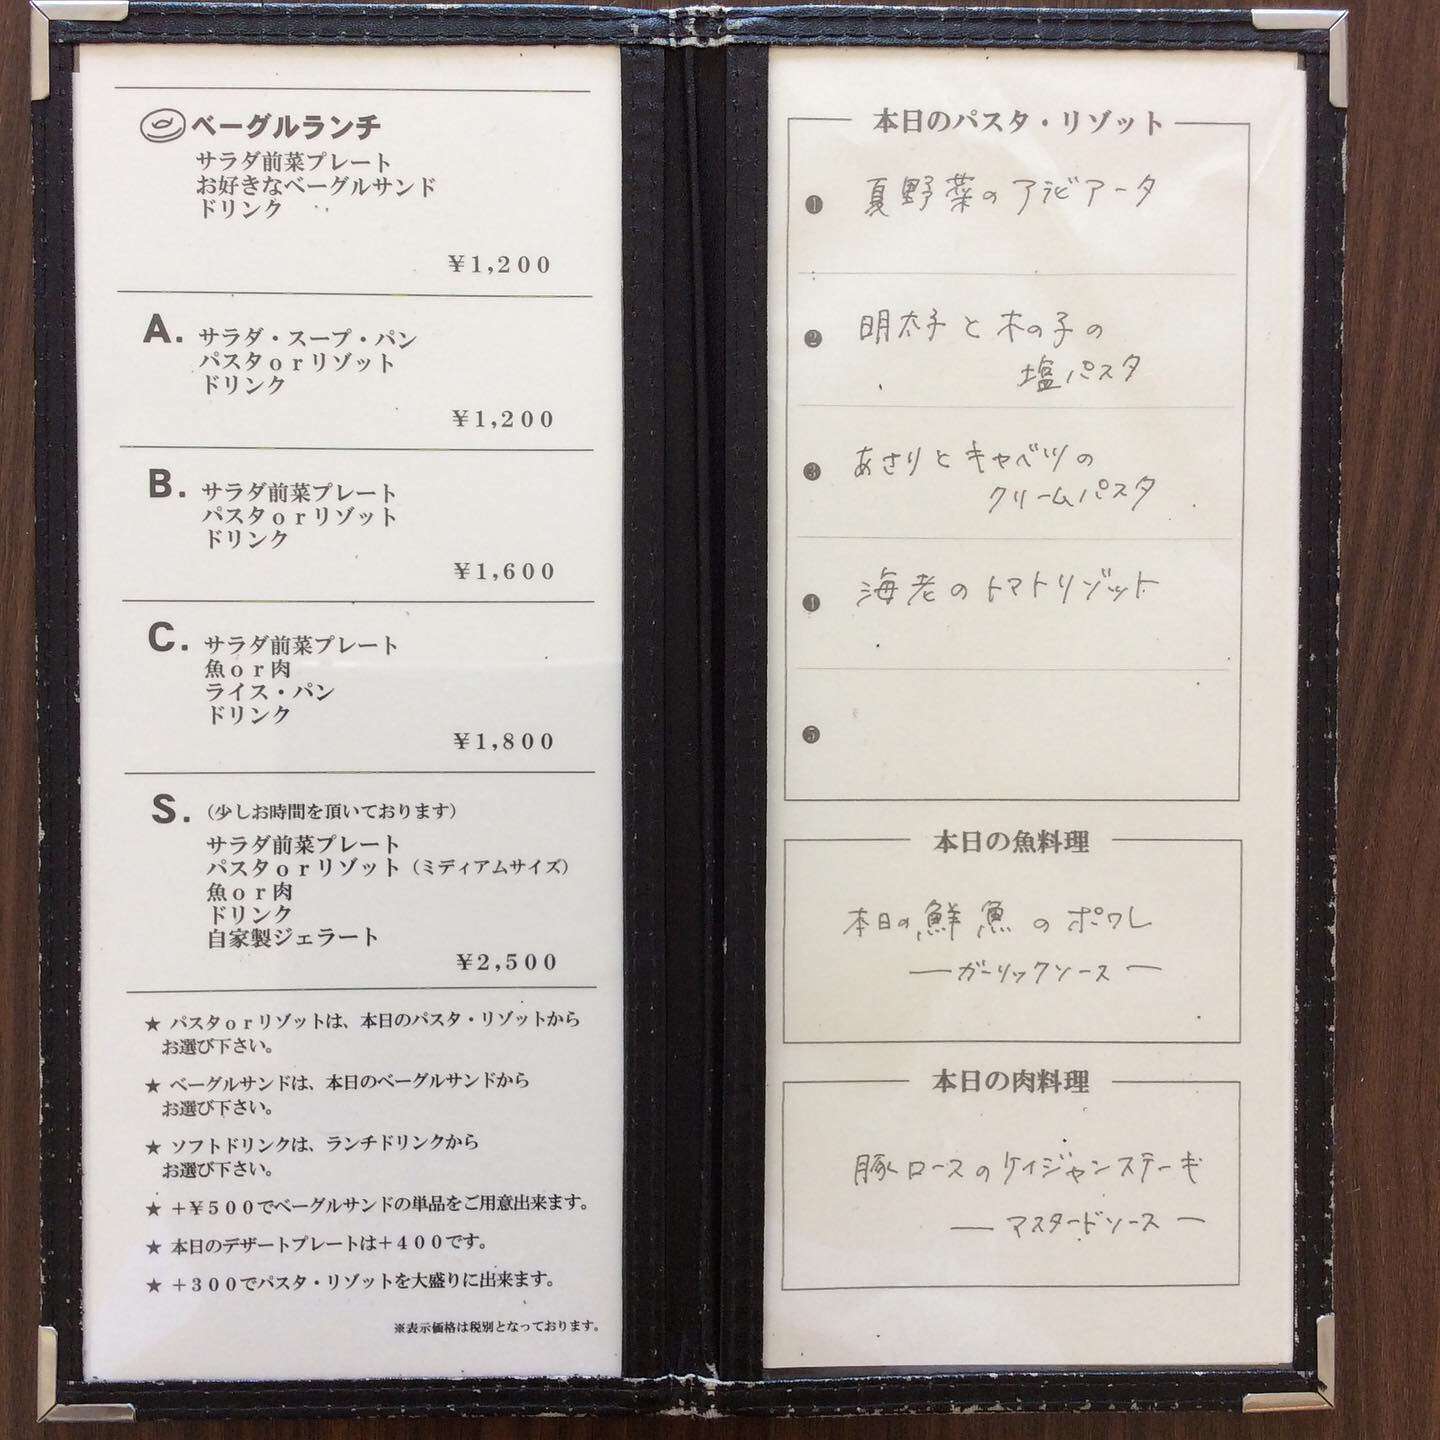 ベーグルランチ
サラダ前菜プレート
お好きなベーグルサンド
ドリンク
¥1,200
A. サラダ・スープ・パン
パスタorリゾット
ドリンク
¥1,200
B. サラダ前菜プレート
パスタorリゾット
ドリンク
¥1,600
C. サラダ前菜プレート
魚or肉
ライス・パン
ドリンク
¥1,800
S. (少しお時間を頂いております)
サラダ前菜プレート
パスタorリゾット(ミディアムサイズ)
魚or肉
ドリンク
自家製ジェラート
¥2,500
★ パスタorリゾットは、本日のパスタ・リゾットから
お選び下さい。
★ ベーグルサンドは、本日のベーグルサンドから
お選び下さい。
★ ソフトドリンクは、ランチドリンクから
お選び下さい。
★ +¥500でベーグルサンドの単品をご用意出来ます。
★ 本日のデザートプレートは+400です。
★ +300でパスタ・リゾットを大盛りに出来ます。
※表示価格は税別となっております。
本日のパスタ・リゾット
❶ 夏野菜のアラビアータ
❷ 明太子と木の子の
塩パスタ
❸ あさりとキャベツの
クリームパスタ
❹ 海老のトマトリゾット
❺
本日の魚料理
本日の鮮魚のポワレ
―ガーリックソース―
本日の肉料理
豚ロースのケイジャンステーキ
―マスタードソース―